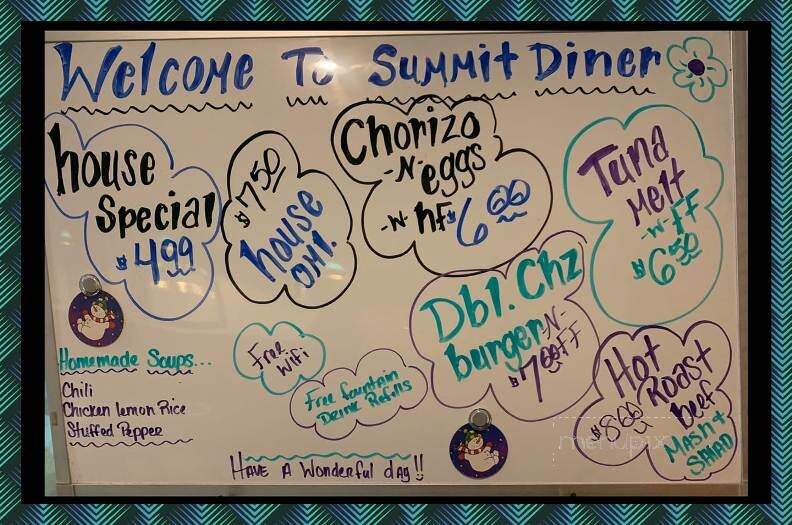 Welcome To Summit Diner
house
Special
$4.99
$7.50
house
OMI.
Chorizo
-N-
eggs
-w- hf $6.00
Tuna
Melt
-w- FF
$6.50
Dbl. Chz
burger -N-
$7.00 FF
Hot
Roast
Beef
$8.00
Mash +
Salad
Homemade Soups...
Chili
Chicken lemon Rice
Stuffed Pepper
Free
WiFi
Free fountain
Drink Refills
Have A Wonderful day!!
menupix